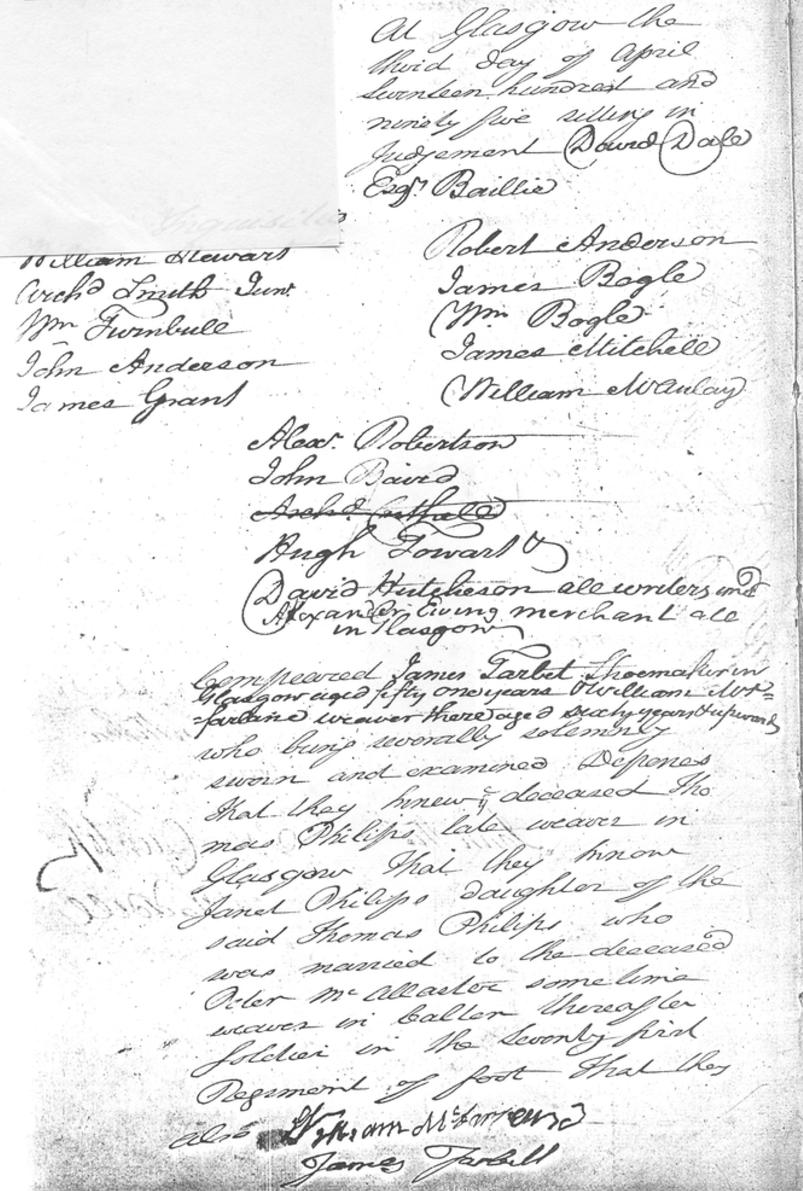 At Glasgow the
third day of April
Seventeen hundred and
ninety five sitting in
Judgement David Dale
Esqr. Baillie
Inquisitio
William Stewart
Archd Smith Junr.
Wm Turnbull
John Anderson
James Grant
Robert Anderson
James Bogle
Wm Bogle
James Mitchell
William McAulay
Alexr. Robertson
John Baird
Archd.
Hugh Towart &
David Hutcheson all writers and
Alexander Ewing merchant all
in Glasgow
Compeared James Tarbet Shoemaker in
Glasgow aged fifty one years & William Mc=
=farlane weaver there aged sixty years & upwards
who being severally solemnly
sworn and examined Depones
that they knew ye deceased Tho
mas Philips late weaver in
Glasgow That they know
Janet Philips daughter of the
said Thomas Philips who
was married to the deceased
Peter McAllaster sometime
weaver in Calton thereafter
Soldier in the Seventy first
Regiment of foot That they
also
William
James Tarbett